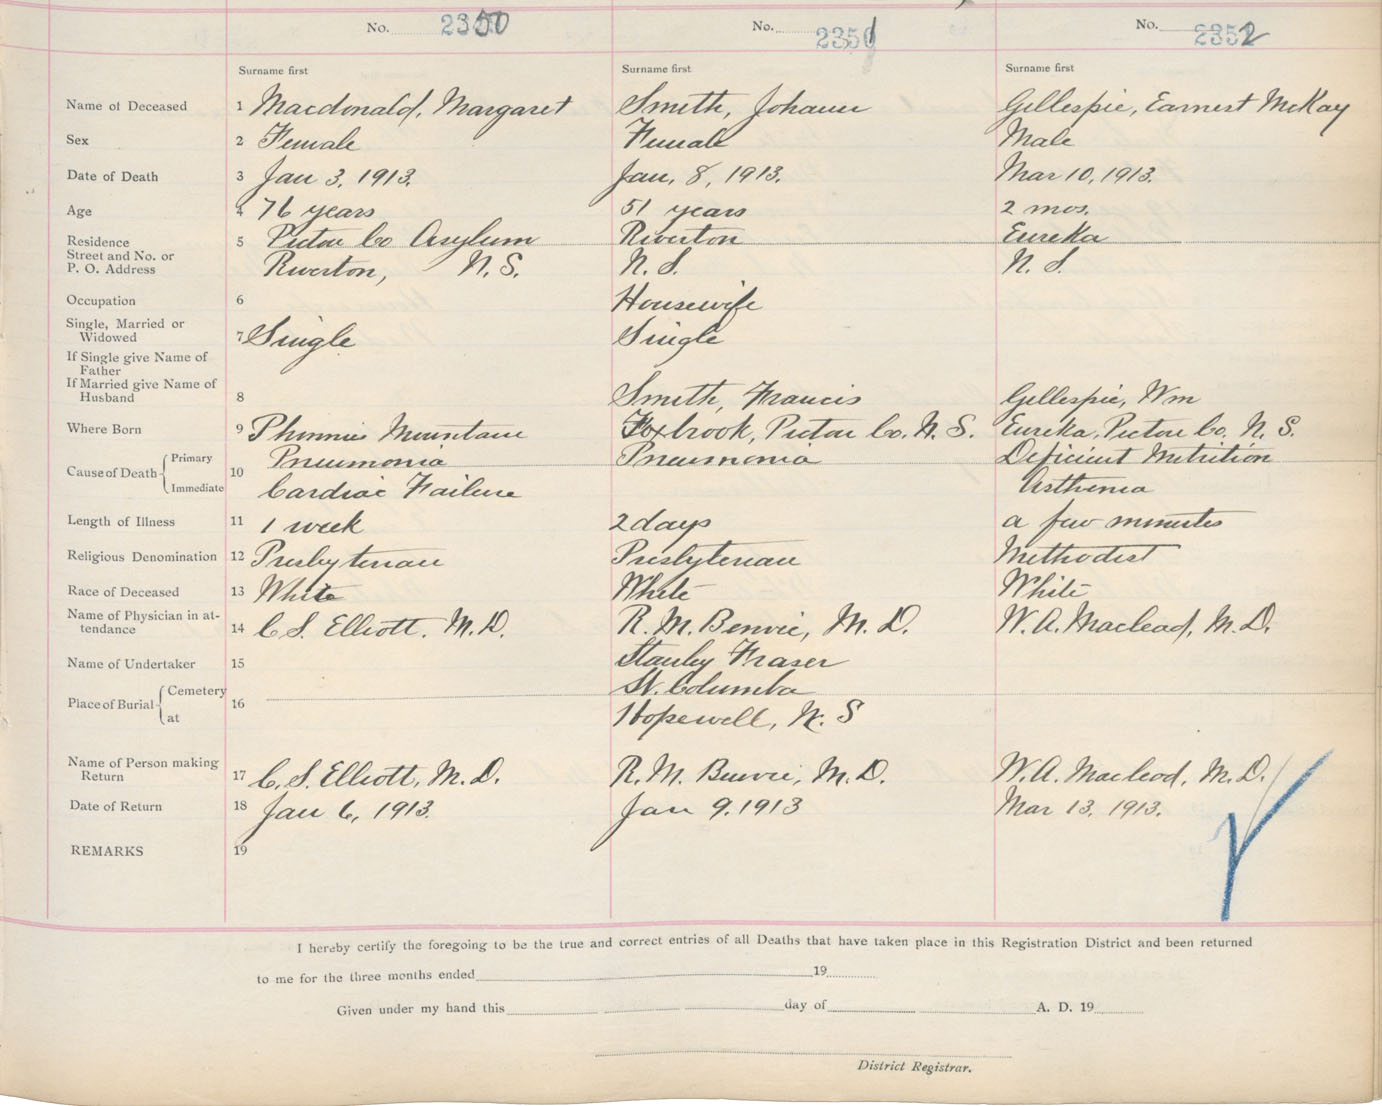 No. 2350 No. 2351 No. 2352
Surname first Surname first Surname first
Name of Deceased 1 Macdonald, Margaret Smith, Johann Gillespie, Earnest McKay
Sex 2 Female Female Male
Date of Death 3 Jan 3, 1913. Jan, 8, 1913. Mar 10, 1913.
Age 4 76 years 51 years 2 mos.
Residence 5 Pictou Co Asylum Riverton Eureka
Street and No. or
P. O. Address Riverton, N.S. N. S. N. S.
Occupation 6 Housewife
Single, Married or
Widowed 7 Single Single
If Single give Name of
Father
If Married give Name of
Husband 8 Smith, Francis Gillespie, Wm
Where Born 9 Mountain Foxbrook, Pictou Co. N. S. Eureka, Pictou Co. N. S.
Cause of Death Primary 10 Pneumonia Pneumonia Deficient Nutrition
Immediate Cardiac Failure Asthenia
Length of Illness 11 1 week 2 days a few minutes
Religious Denomination 12 Presbyterian Presbyterian Methodist
Race of Deceased 13 White White White
Name of Physician in at-
tendance 14 C. S. Elliott. M. D. R. M. Benvie, M. D. W. A. Macleod, M. D.
Name of Undertaker 15 Stanley Fraser
Place of Burial Cemetery 16 St. Columba
at Hopewell, N. S
Name of Person making
Return 17 C. S. Elliott, M. D. R. M. Benvie, M. D. W. A. Macleod, M. D.
Date of Return 18 Jan 6, 1913. Jan 9. 1913 Mar 13, 1913.
REMARKS 19
I hereby certify the foregoing to be the true and correct entries of all Deaths that have taken place in this Registration District and been returned
to me for the three months ended 19
Given under my hand this day of A. D. 19
District Registrar.